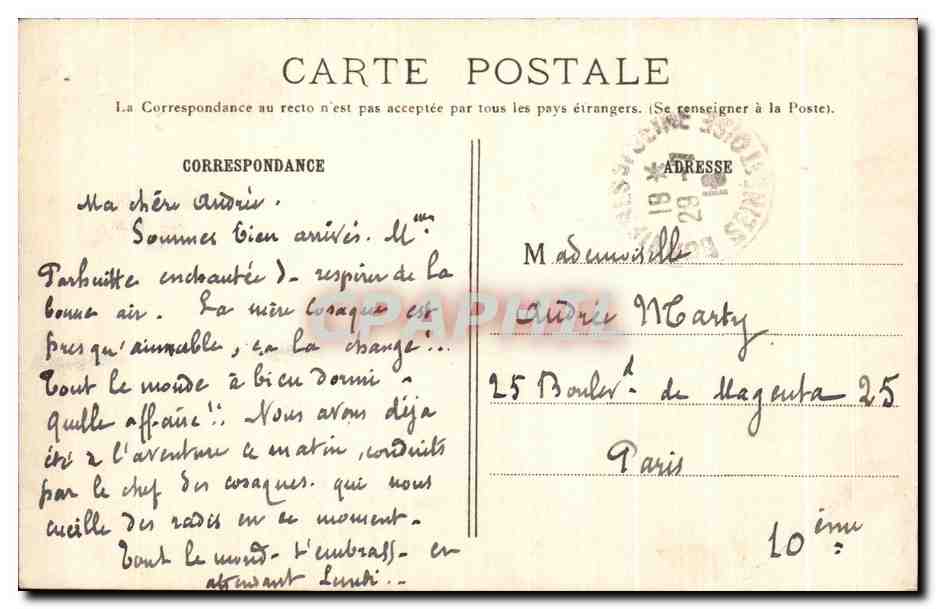 CARTE POSTALE
La Correspondance au recto n'est pas acceptée par tous les pays étrangers. (Se renseigner à la Poste).
CORRESPONDANCE
Ma chère Andrée.
Sommes bien arrivés. Mme
enchantée d- respirer de la
bonne air. La mère cosaque est
presqu'aimable, ça la change!..
Tout le monde à bien dormi -
Quelle affaire!! Nous avons déja
été à l'aventure ce matin, conduits
par le chef des cosaques. qui nous
cueille des radis en ce moment.
Tout le mond- t'embrass- en
attendant Lundi..
ADRESSE
18 * 7
29
Mademoiselle
Andrée Marty
25 Boulevd. de Magenta 25
Paris
10ème
CPAPHIL